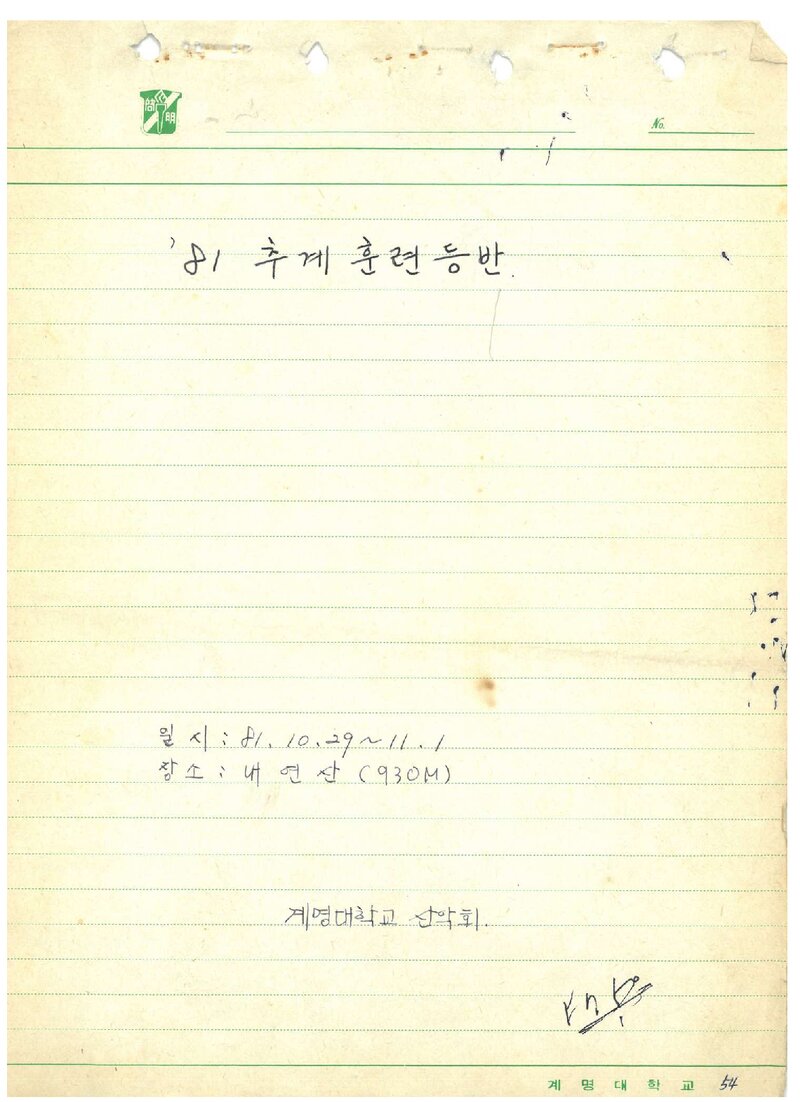 啓明
No.
'81 추계 훈련등반.
일시 : 81. 10. 29 ~ 11. 1
장소 : 내연산 (930M)
계명대학교 산악회.
계명대학교 54